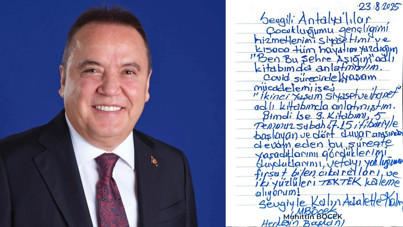 23.8.2025
Sevgili Antalyalılar
Çocukluğumu gençliğimi
hizmetlerimi siyasetimi ve
kısaca tüm hayatımı yazdığım
"Ben Bu Şehre Aşığım" adlı
kitabımda anlatmıştım.
Covid sürecinde yaşam
mücadelemi ise;
"İkinci Yaşam Siyaset ve
adlı kitabımda anlatmıştım.
Şimdi ise 3. Kitabımı, 5
Temmuz sabah 07.15 itibariyle
başlayan ve dört duvar arasında
devam eden bu süreçte
yaşadıklarımı gördüklerimi
duyduklarımı, vefayı yokluğumu
fırsat bilen çıkarcıları, ve
iki yüzlüleri TEK TEK kaleme
alıyorum!
Sevgiyle Kalın Adaletle Kalın
M. BÖCEK
Muhittin BÖCEK
Herkesin Başkanı